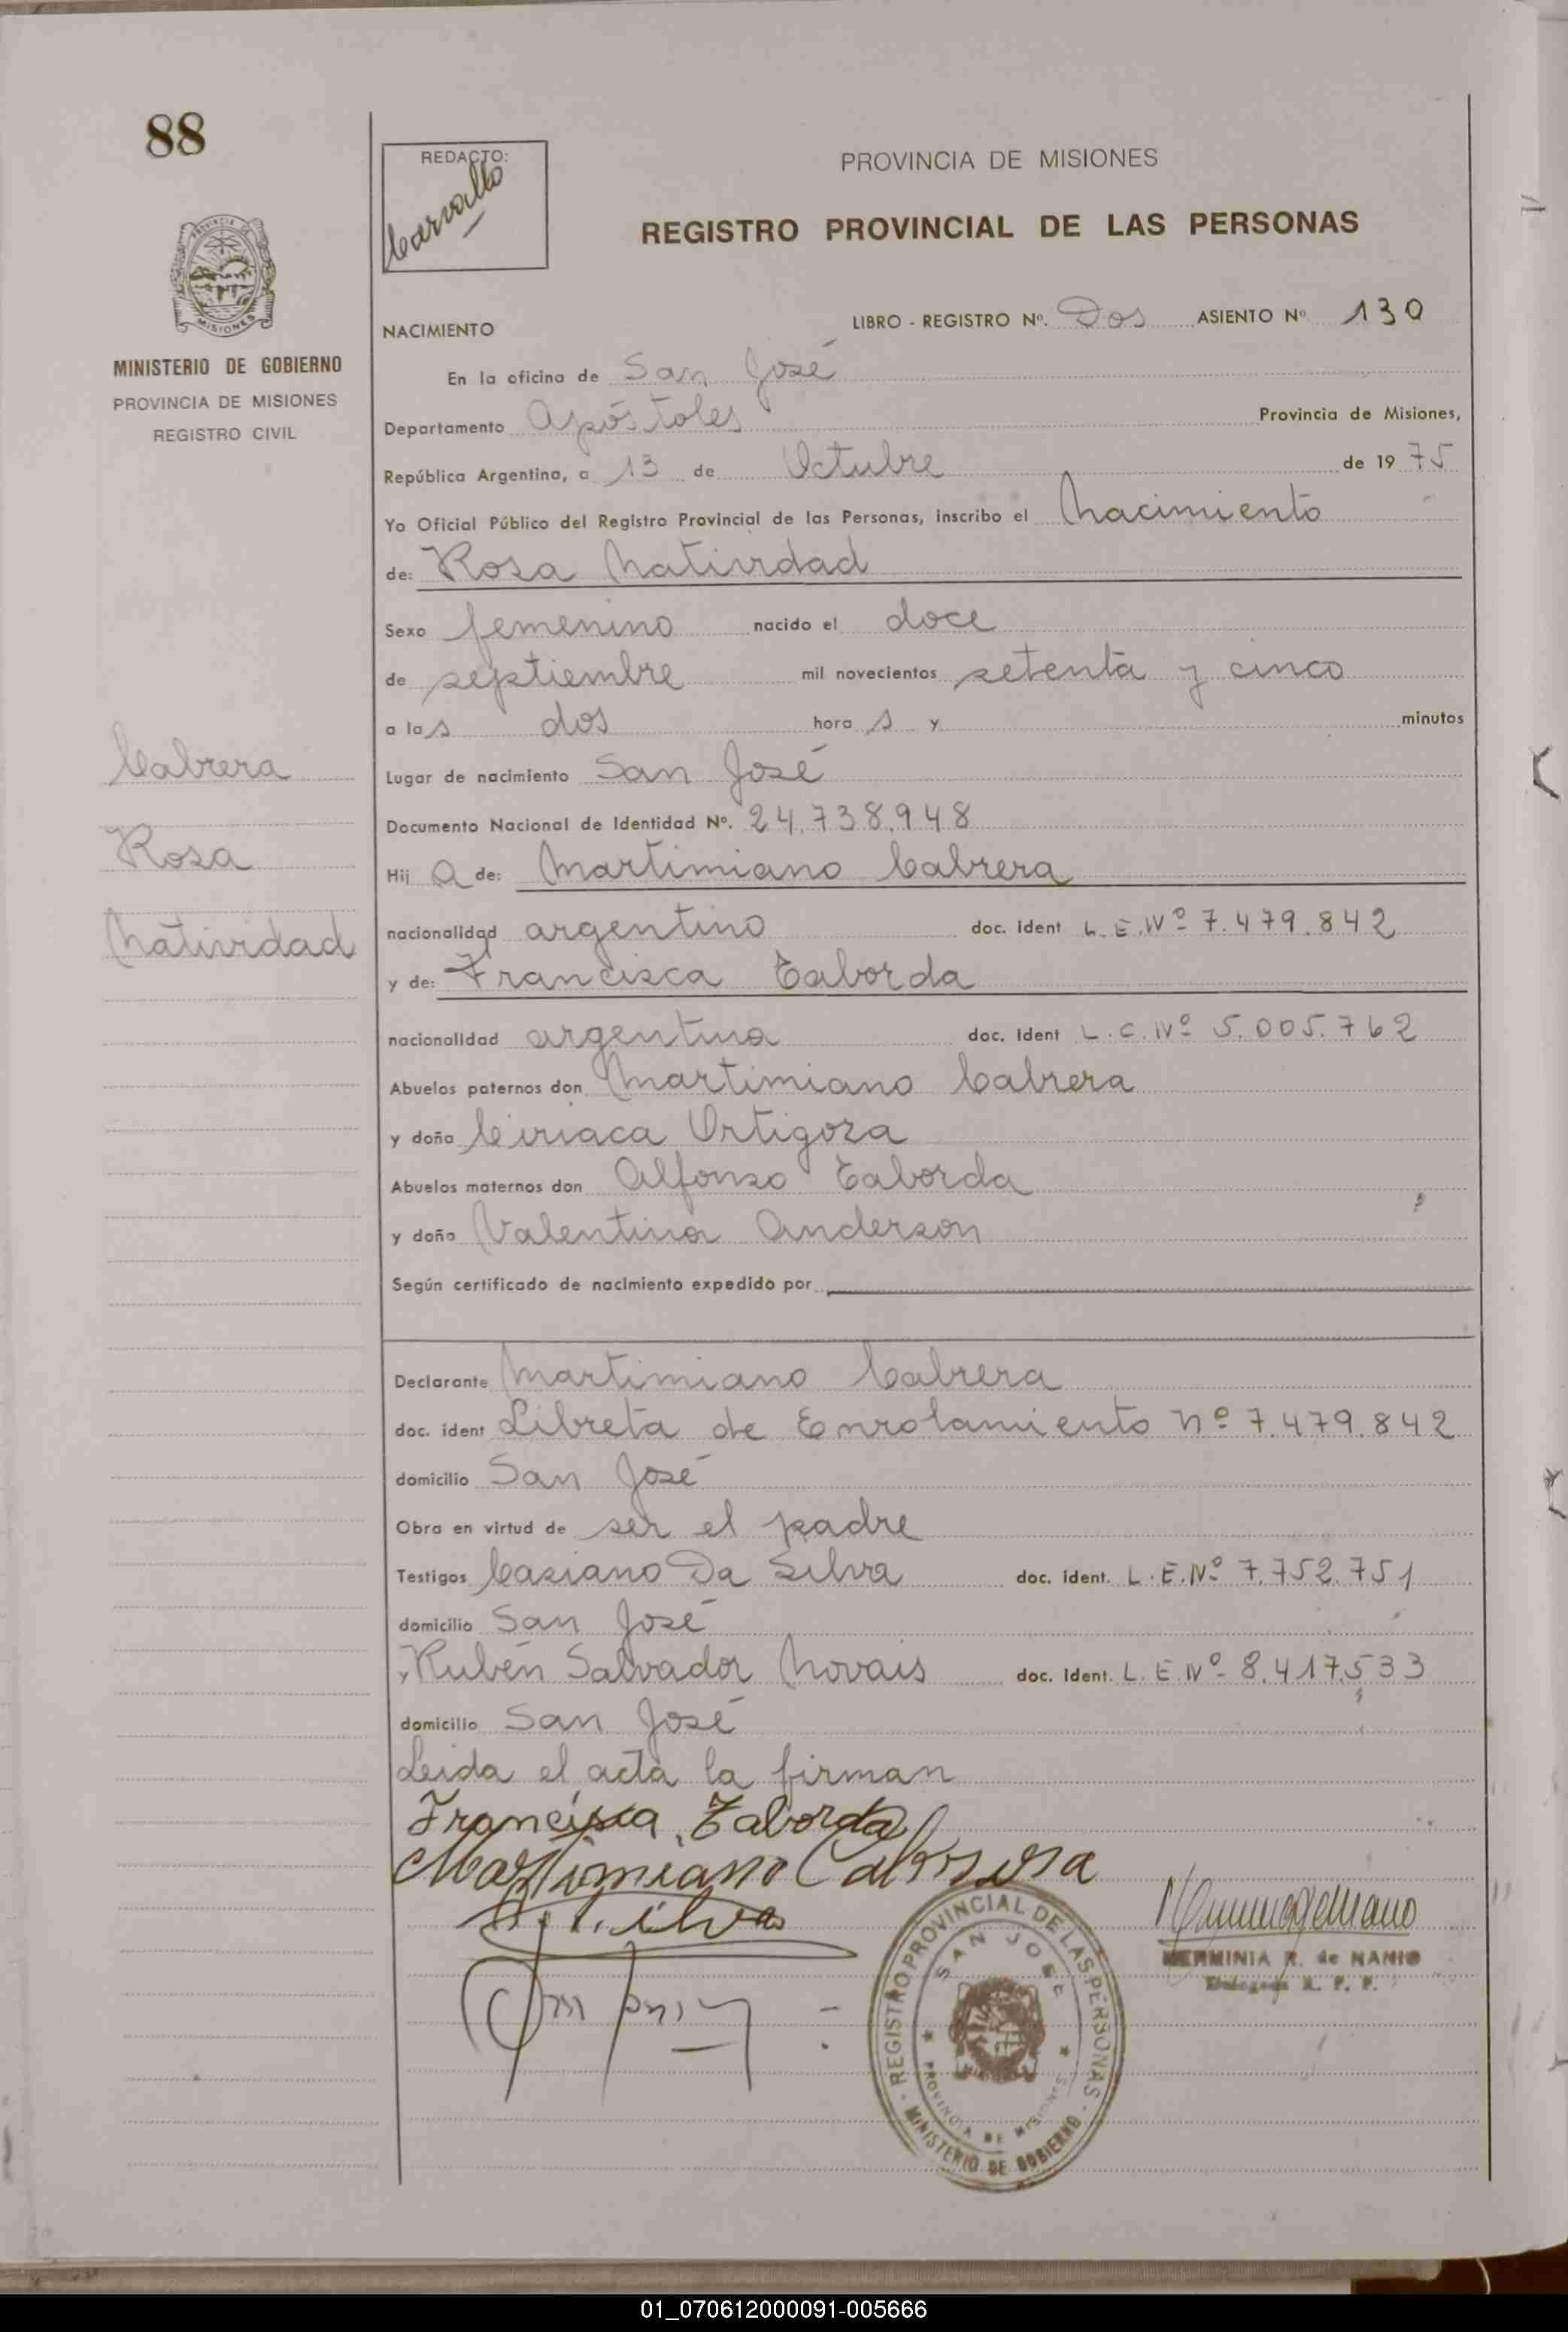 88
REDACTO:
Carvallo
PROVINCIA DE MISIONES
REGISTRO PROVINCIAL DE LAS PERSONAS
MISIONES
MINISTERIO DE GOBIERNO
PROVINCIA DE MISIONES
REGISTRO CIVIL
NACIMIENTO
LIBRO - REGISTRO Nº. Dos ASIENTO Nº 130
En la oficina de San José
Departamento Apóstoles Provincia de Misiones,
República Argentina, a 13 de Octubre de 1975
Yo Oficial Público del Registro Provincial de las Personas, inscribo el Nacimiento
de: Rosa Natividad
Sexo femenino nacido el doce
de septiembre mil novecientos setenta y cinco
a las dos horas y minutos
Cabrera
Rosa
Natividad
Lugar de nacimiento San José
Documento Nacional de Identidad Nº. 24.738.948
Hija de: Martimiano Cabrera
nacionalidad argentino doc. ident L.E.Nº 7.479.842
y de: Francisca Taborda
nacionalidad argentina doc. ident L.C.Nº 5.005.762
Abuelos paternos don Martimiano Cabrera
y doña Ciriaca Ortigoza
Abuelos maternos don Alfonso Taborda
y doña Valentina Anderson
Según certificado de nacimiento expedido por
Declarante Martimiano Cabrera
doc. ident Libreta de Enrolamiento nº 7.479.842
domicilio San José
Obra en virtud de ser el padre
Testigos Casiano Da Silva doc. ident. L.E.Nº 7.752.751
domicilio San José
y Rubén Salvador Novais doc. ident. L.E.Nº 8.417.533
domicilio San José
Leida el acta la firman
Francisca Taborda
Martimiano Cabrera
HERMINIA R. de NANIO
Delegada R. P. P.
REGISTRO PROVINCIAL DE LAS PERSONAS
SAN JOSE
PROVINCIA DE MISIONES
MINISTERIO DE GOBIERNO
01_070612000091-005666